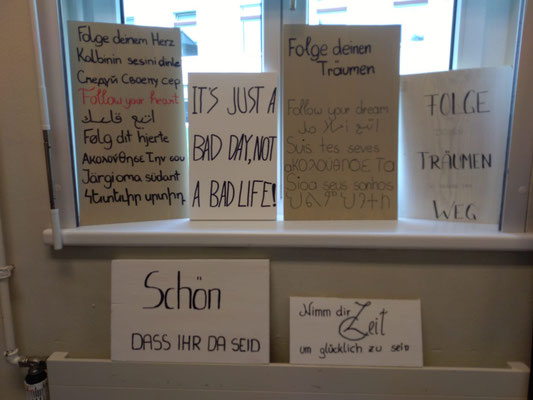 Folge deinem Herz
Kalbinin sesini dinle
Следуй Своему сер
Follow your heart
اتبع قلبك
Følg dit hjerte
Ακολούθησε Την
Järgioma südant
IT'S JUST A
BAD DAY, NOT
A BAD LIFE!
Folge deinen
Träumen
Follow your dream
Suis tes seves
ακολούθησε Τα
Siga seus sonhos
FOLGE
TRÄUMEN
WEG
Schön
DASS IHR DA SEID
Nimm dir
Zeit
um glücklich zu sein